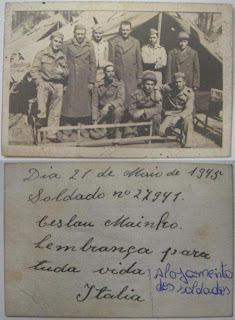 Dia 21 de Maio de 1945
Soldado nº 27941.
Ceslau Mainko.
Lembrança para
tuda vida
Italia
Alojamento
dos soldados